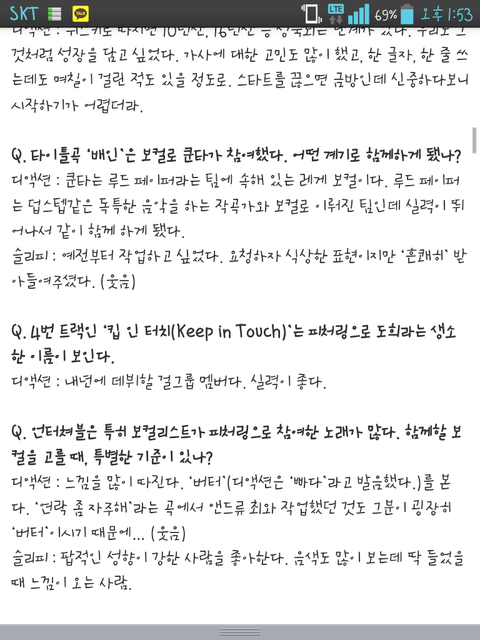 SKT TALK LTE 69% 오후 1:53
것처럼 성장을 담고 싶었다. 가사에 대한 고민도 많이 했고, 한 글자, 한 줄 쓰
는데도 며칠이 걸린 적도 있을 정도로. 스타트를 끊으면 금방인데 신중하다보니
시작하기가 어렵더라.
Q. 타이틀곡 '배인'은 보컬로 쿤타가 참여했다. 어떤 계기로 함께하게 됐나?
디액션 : 쿤타는 루드 페이퍼라는 팀에 속해 있는 레게 보컬이다. 루드 페이퍼
는 덥스텝같은 독특한 음악을 하는 작곡가와 보컬로 이뤄진 팀인데 실력이 뛰
어나서 같이 함께 하게 됐다.
슬리피 : 예전부터 작업하고 싶었다. 요청하자 식상한 표현이지만 '흔쾌히' 받
아들여주셨다. (웃음)
Q. 4번 트랙인 '킵 인 터치(Keep in Touch)'는 피처링으로 도희라는 생소
한 이름이 보인다.
디액션 : 내년에 데뷔할 걸그룹 멤버다. 실력이 좋다.
Q. 언터쳐블은 특히 보컬리스트가 피처링으로 참여한 노래가 많다. 함께할 보
컬을 고를 때, 특별한 기준이 있나?
디액션 : 느낌을 많이 따진다. '버터'(디액션은 '빠다'라고 발음했다.)를 본
다. '연락 좀 자주해'라는 곡에서 앤드류 최와 작업했던 것도 그분이 굉장히
'버터'이시기 때문에... (웃음)
슬리피 : 팝적인 성향이 강한 사람을 좋아한다. 음색도 많이 보는데 딱 들었을
때 느낌이 오는 사람.